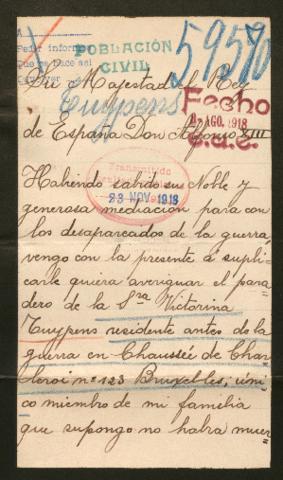 A
Pedir informe
POBLACIÓN
CIVIL
59570
Su Majestad el Rey
Cuypens
Fecho
AGO. 1918
de España Don Alfonso XIII
Transmitido
23 NOV. 1918
Habiendo sabido su Noble y
generosa mediacion para con
los desaparecidos de la guerra,
vengo con la presente á supli-
carle quiera averiguar el para
dero de la Sra Victorina
Cuypens residente antes de la
guerra en Chaussée de Char
leroi nº 123 Bruxelles, úni
co miembro de mi familia
que supongo no habra muer